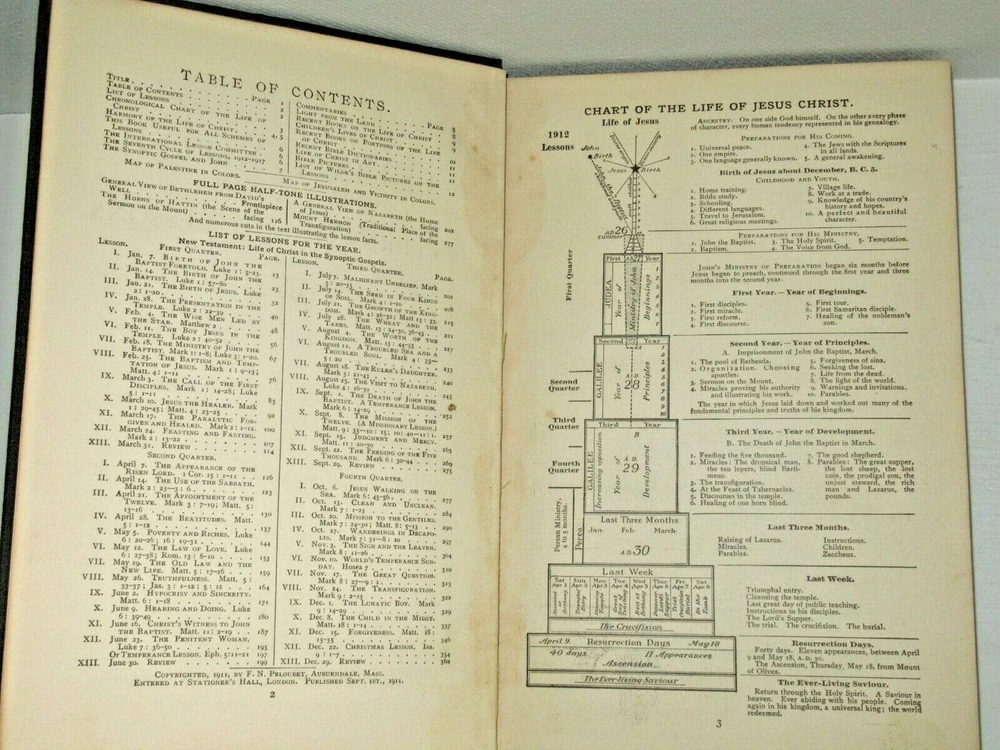 TABLE OF CONTENTS.
PAGE
TITLE
TABLE OF CONTENTS
LIST OF LESSONS
CHRONOLOGICAL CHART OF THE LIFE OF
CHRIST
HARMONY OF THE LIFE OF CHRIST
THIS BOOK USEFUL FOR ALL SCHEMES OF
LESSONS
THE INTERNATIONAL LESSON COMMITTEE
THE SEVENTH CYCLE OF LESSONS, 1912-1917
THE SYNOPTIC GOSPEL AND JOHN
MAP OF PALESTINE IN COLORS.
PAGE
COMMENTARIES 8
LIGHT FROM THE LAND 8
RECENT BOOKS ON THE LIFE OF CHRIST 9
CHILDREN'S LIVES OF CHRIST 9
RECENT BOOKS ON PORTIONS OF THE LIFE
OF CHRIST
RECENT BIBLE DICTIONARIES
LIFE OF CHRIST IN ART
BIBLE PICTURES
LIST OF WILDE'S BIBLE PICTURES ON THE
LESSONS
MAP OF JERUSALEM AND VICINITY IN COLORS.
FULL PAGE HALF-TONE ILLUSTRATIONS.
GENERAL VIEW OF BETHLEHEM FROM DAVID'S
WELL Frontispiece
THE HORNS OF HATTIN (the Scene of the
Sermon on the Mount) facing 126
A GENERAL VIEW OF NAZARETH (the Home
of Jesus) facing 202
MOUNT HERMON (Traditional Place of the
Transfiguration) facing 277
And numerous cuts in the text illustrating the lesson facts.
LIST OF LESSONS FOR THE YEAR.
New Testament: Life of Christ in the Synoptic Gospels.
LESSON. FIRST QUARTER. PAGE.
I. Jan. 7. BIRTH OF JOHN THE
BAPTIST FORETOLD. Luke 1: 5-23. 13
II. Jan. 14. THE BIRTH OF JOHN THE
BAPTIST. Luke 1: 57-80 23
III. Jan. 21. THE BIRTH OF JESUS. Luke
2: 1-20 32
IV. Jan. 28. THE PRESENTATION IN THE
TEMPLE. Luke 2: 22-39 40
V. Feb. 4. THE WISE MEN LED BY
THE STAR. Matthew 2 48
VI. Feb. 11. THE BOY JESUS IN THE
TEMPLE. Luke 2: 40-52 56
VII. Feb. 18. THE MINISTRY OF JOHN THE
BAPTIST. Mark 1: 1-8; Luke 3: 1-20. 67
VIII. Feb. 25. THE BAPTISM AND TEMP-
TATION OF JESUS. Mark 1: 9-13;
Matt. 4: 1-11 76
IX. March 3. THE CALL OF THE FIRST
DISCIPLES. Mark 1: 14-28; Luke
5: 1-11 85
X. March 10. JESUS THE HEALER. Mark
1: 29-45; Matt. 4: 23-25 92
XI. March 17. THE PARALYTIC FOR-
GIVEN AND HEALED. Mark 2: 1-12. 100
XII. March 24. FEASTING AND FASTING.
Mark 2: 13-22 107
XIII. March 31. REVIEW 114
SECOND QUARTER.
I. April 7. THE APPEARANCE OF THE
RISEN LORD. 1 Cor. 15: 1-11 116
II. April 14. THE USE OF THE SABBATH.
Mark 2: 23-3: 6 123
III. April 21. THE APPOINTMENT OF THE
TWELVE. Mark 3: 7-19; Matt. 5:
13-16 130
IV. April 28. THE BEATITUDES. Matt.
5: 1-12 137
V. May 5. POVERTY AND RICHES. Luke
6: 20-26; 16: 19-31 144
VI. May 12. THE LAW OF LOVE. Luke
6: 27-38; Rom. 13: 8-10 153
VII. May 19. THE OLD LAW AND THE
NEW LIFE. Matt. 5: 17-26 159
VIII. May 26. TRUTHFULNESS. Matt. 5:
33-37; Jas. 3: 1-12; 5: 12 164
IX. June 2. HYPOCRISY AND SINCERITY.
Matt. 6: 1-18 171
X. June 9. HEARING AND DOING. Luke
6: 39-49 180
XI. June 16. CHRIST'S WITNESS TO JOHN
THE BAPTIST. Matt. 11: 2-19 187
XII. June 23. THE PENITENT WOMAN.
Luke 7: 36-50 193
Or TEMPERANCE LESSON. Eph. 5: 11-21 197
XIII. June 30. REVIEW 199
LESSON. THIRD QUARTER. PAGE.
I. July 7. MALIGNANT UNBELIEF. Mark
3: 20-35 202
II. July 14. THE SEED IN FOUR KINDS
OF SOIL. Mark 4: 1-20 208
III. July 21. THE GROWTH OF THE KING-
DOM. Mark 4: 26-32; Matt. 13: 33. 215
IV. July 28. THE WHEAT AND THE
TARES. Matt. 13: 24-30, 36-43 221
V. August 4. THE WORTH OF THE
KINGDOM. Matt. 13: 44-55 227
VI. August 11. A TROUBLED SEA AND A
TROUBLED SOUL. Mark 4: 35—
5: 20 233
VII. August 18. THE RULER'S DAUGHTER.
Mark 5: 21-43 240
VIII. August 25. THE VISIT TO NAZARETH.
Luke 4: 16-30 245
IX. Sept. 1. THE DEATH OF JOHN THE
BAPTIST. A TEMPERANCE LESSON.
Mark 6: 14-29 252
X. Sept. 8. THE MISSION OF THE
TWELVE. (A MISSIONARY LESSON.)
Matt. 9: 35—10: 15; 10: 40—11: 1. 257
XI. Sept. 15. JUDGMENT AND MERCY.
Matt. 11: 20-30 263
XII. Sept. 22. THE FEEDING OF THE FIVE
THOUSAND. Mark 6: 30-44 269
XIII. Sept. 29. REVIEW 275
FOURTH QUARTER.
I. Oct. 6. JESUS WALKING ON THE
SEA. Mark 6: 45-56 277
II. Oct. 13. CLEAN AND UNCLEAN.
Mark 7: 1-23 284
III. Oct. 20. MISSION TO THE GENTILES.
Mark 7: 24-30; Matt. 8: 5-13 290
IV. Oct. 27. WANDERINGS IN DECAPO-
LIS. Mark 7: 31—8: 10 297
V. Nov. 3. THE SIGN AND THE LEAVEN.
Mark 8: 11-26 304
VI. Nov. 10. WORLD'S TEMPERANCE SUN-
DAY. Hosea 7 310
VII. Nov. 17. THE GREAT QUESTION.
Mark 8: 27—9: 1 315
VIII. Nov. 24. THE TRANSFIGURATION.
Mark 9: 2-13
IX. Dec. 1. THE LUNATIC BOY. Mark
9: 14-29
X. Dec. 8. THE CHILD IN THE MIDST.
Matt. 18: 1-14 337
XI. Dec. 15. FORGIVENESS. Matt. 18:
15-35 346
XII. Dec. 22. CHRISTMAS LESSON. Isa.
9: 1-7 354
XIII. Dec. 29. REVIEW 362
COPYRIGHTED, 1911, BY F. N. PELOUBET, AUBURNDALE, MASS.
ENTERED AT STATIONER'S HALL, LONDON. PUBLISHED SEPT. 1ST., 1911.
2
CHART OF THE LIFE OF JESUS CHRIST.
1912
Lessons
Life of Jesus
John
Birth
Jesus
Birth
A.D. 26
Summer
First Quarter
Second Quarter
Third Quarter
Fourth Quarter
First A.D. 27 Year
JUDEA
Year of Beginnings
Ministry of John
Second Year
GALILEE
Year of Principles
A.D. 28
Third Year
GALILEE
Increasing opposition
Year of Development
B
A.D. 29
Peraean Ministry, 4 to 5 months.
Perea
Last Three Months
Jan. Feb. March
A.D. 30
Last Week
Sat Apr 1
Sun Apr 2
Mon Apr 3
Tue Apr 4
Wed Apr 5
Thur Apr 6
Fri. Apr 7
Sat Apr 8
The Crucifixion
April 9. Resurrection Days May 18
40 days 11 Appearances
Ascension
The Ever-living Saviour
ANCESTRY. On one side God himself. On the other every phase
of character, every human tendency represented in his genealogy.
PREPARATIONS FOR HIS COMING.
1. Universal peace.
2. One empire.
3. One language generally known.
4. The Jews with the Scriptures
in all lands.
5. A general awakening.
Birth of Jesus about December, B. C. 5.
CHILDHOOD AND YOUTH.
1. Home training.
2. Bible study.
3. Schooling.
4. Different languages.
5. Travel to Jerusalem.
6. Great religious meetings.
7. Village life.
8. Work at a trade.
9. Knowledge of his country's
history and hopes.
10. A perfect and beautiful
character.
PREPARATIONS FOR HIS MINISTRY.
1. John the Baptist. 3. The Holy Spirit. 5. Temptation.
2. Baptism. 4. The Voice from God.
JOHN'S MINISTRY OF PREPARATION began six months before
Jesus began to preach, continued through the first year and three
months into the second year.
First Year. — Year of Beginnings.
1. First disciples.
2. First miracle.
3. First reform.
4. First discourse.
5. First tour.
6. First Samaritan disciple.
7. Healing of the nobleman's
son.
Second Year. — Year of Principles.
A. Imprisonment of John the Baptist, March.
1. The pool of Bethesda.
2. Organization. Choosing
apostles.
3. Sermon on the Mount.
4. Miracles proving his authority
and illustrating his work.
5. Forgiveness of sins.
6. Seeking the lost.
7. Life from the dead.
8. The light of the world.
9. Warnings and invitations.
10. Parables.
The year in which Jesus laid down and worked out many of the
fundamental principles and truths of his kingdom.
Third Year. — Year of Development.
B. The Death of John the Baptist in March.
1. Feeding the five thousand.
2. Miracles: The dropsical man,
the ten lepers, blind Barti-
meus.
3. The transfiguration.
4. At the Feast of Tabernacles.
5. Discourses in the temple.
6. Healing of one born blind.
7. The good shepherd.
8. Parables: The great supper,
the lost sheep, the lost
coin, the prodigal son, the
unjust steward, the rich
man and Lazarus, the
pounds.
Last Three Months.
Raising of Lazarus. Instructions.
Miracles. Children.
Parables. Zaccheus.
Last Week.
Triumphal entry.
Cleansing the temple.
Last great day of public teaching.
Instructions to his disciples.
The Lord's Supper.
The trial. The crucifixion. The burial.
Resurrection Days.
Forty days. Eleven appearances, between April
9 and May 18, A.D. 30.
The Ascension, Thursday, May 18, from Mount
of Olives.
The Ever-Living Saviour.
Return through the Holy Spirit. A Saviour in
heaven. Ever abiding with his people. Coming
again in his kingdom, a universal king; the world
redeemed.
3